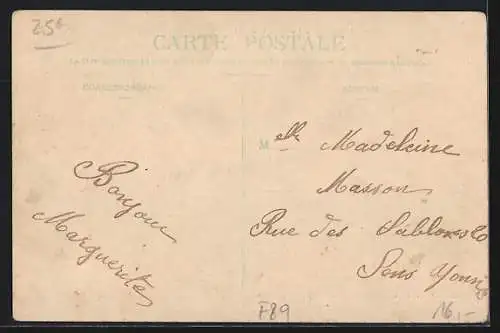 25€
CARTE POSTALE
CORRESPONDANCE
ADRESSE
Bonjour
Marguerite
Melle Madeleine
Masson
Rue des Sablons
Sens Yonne
F89
16,-